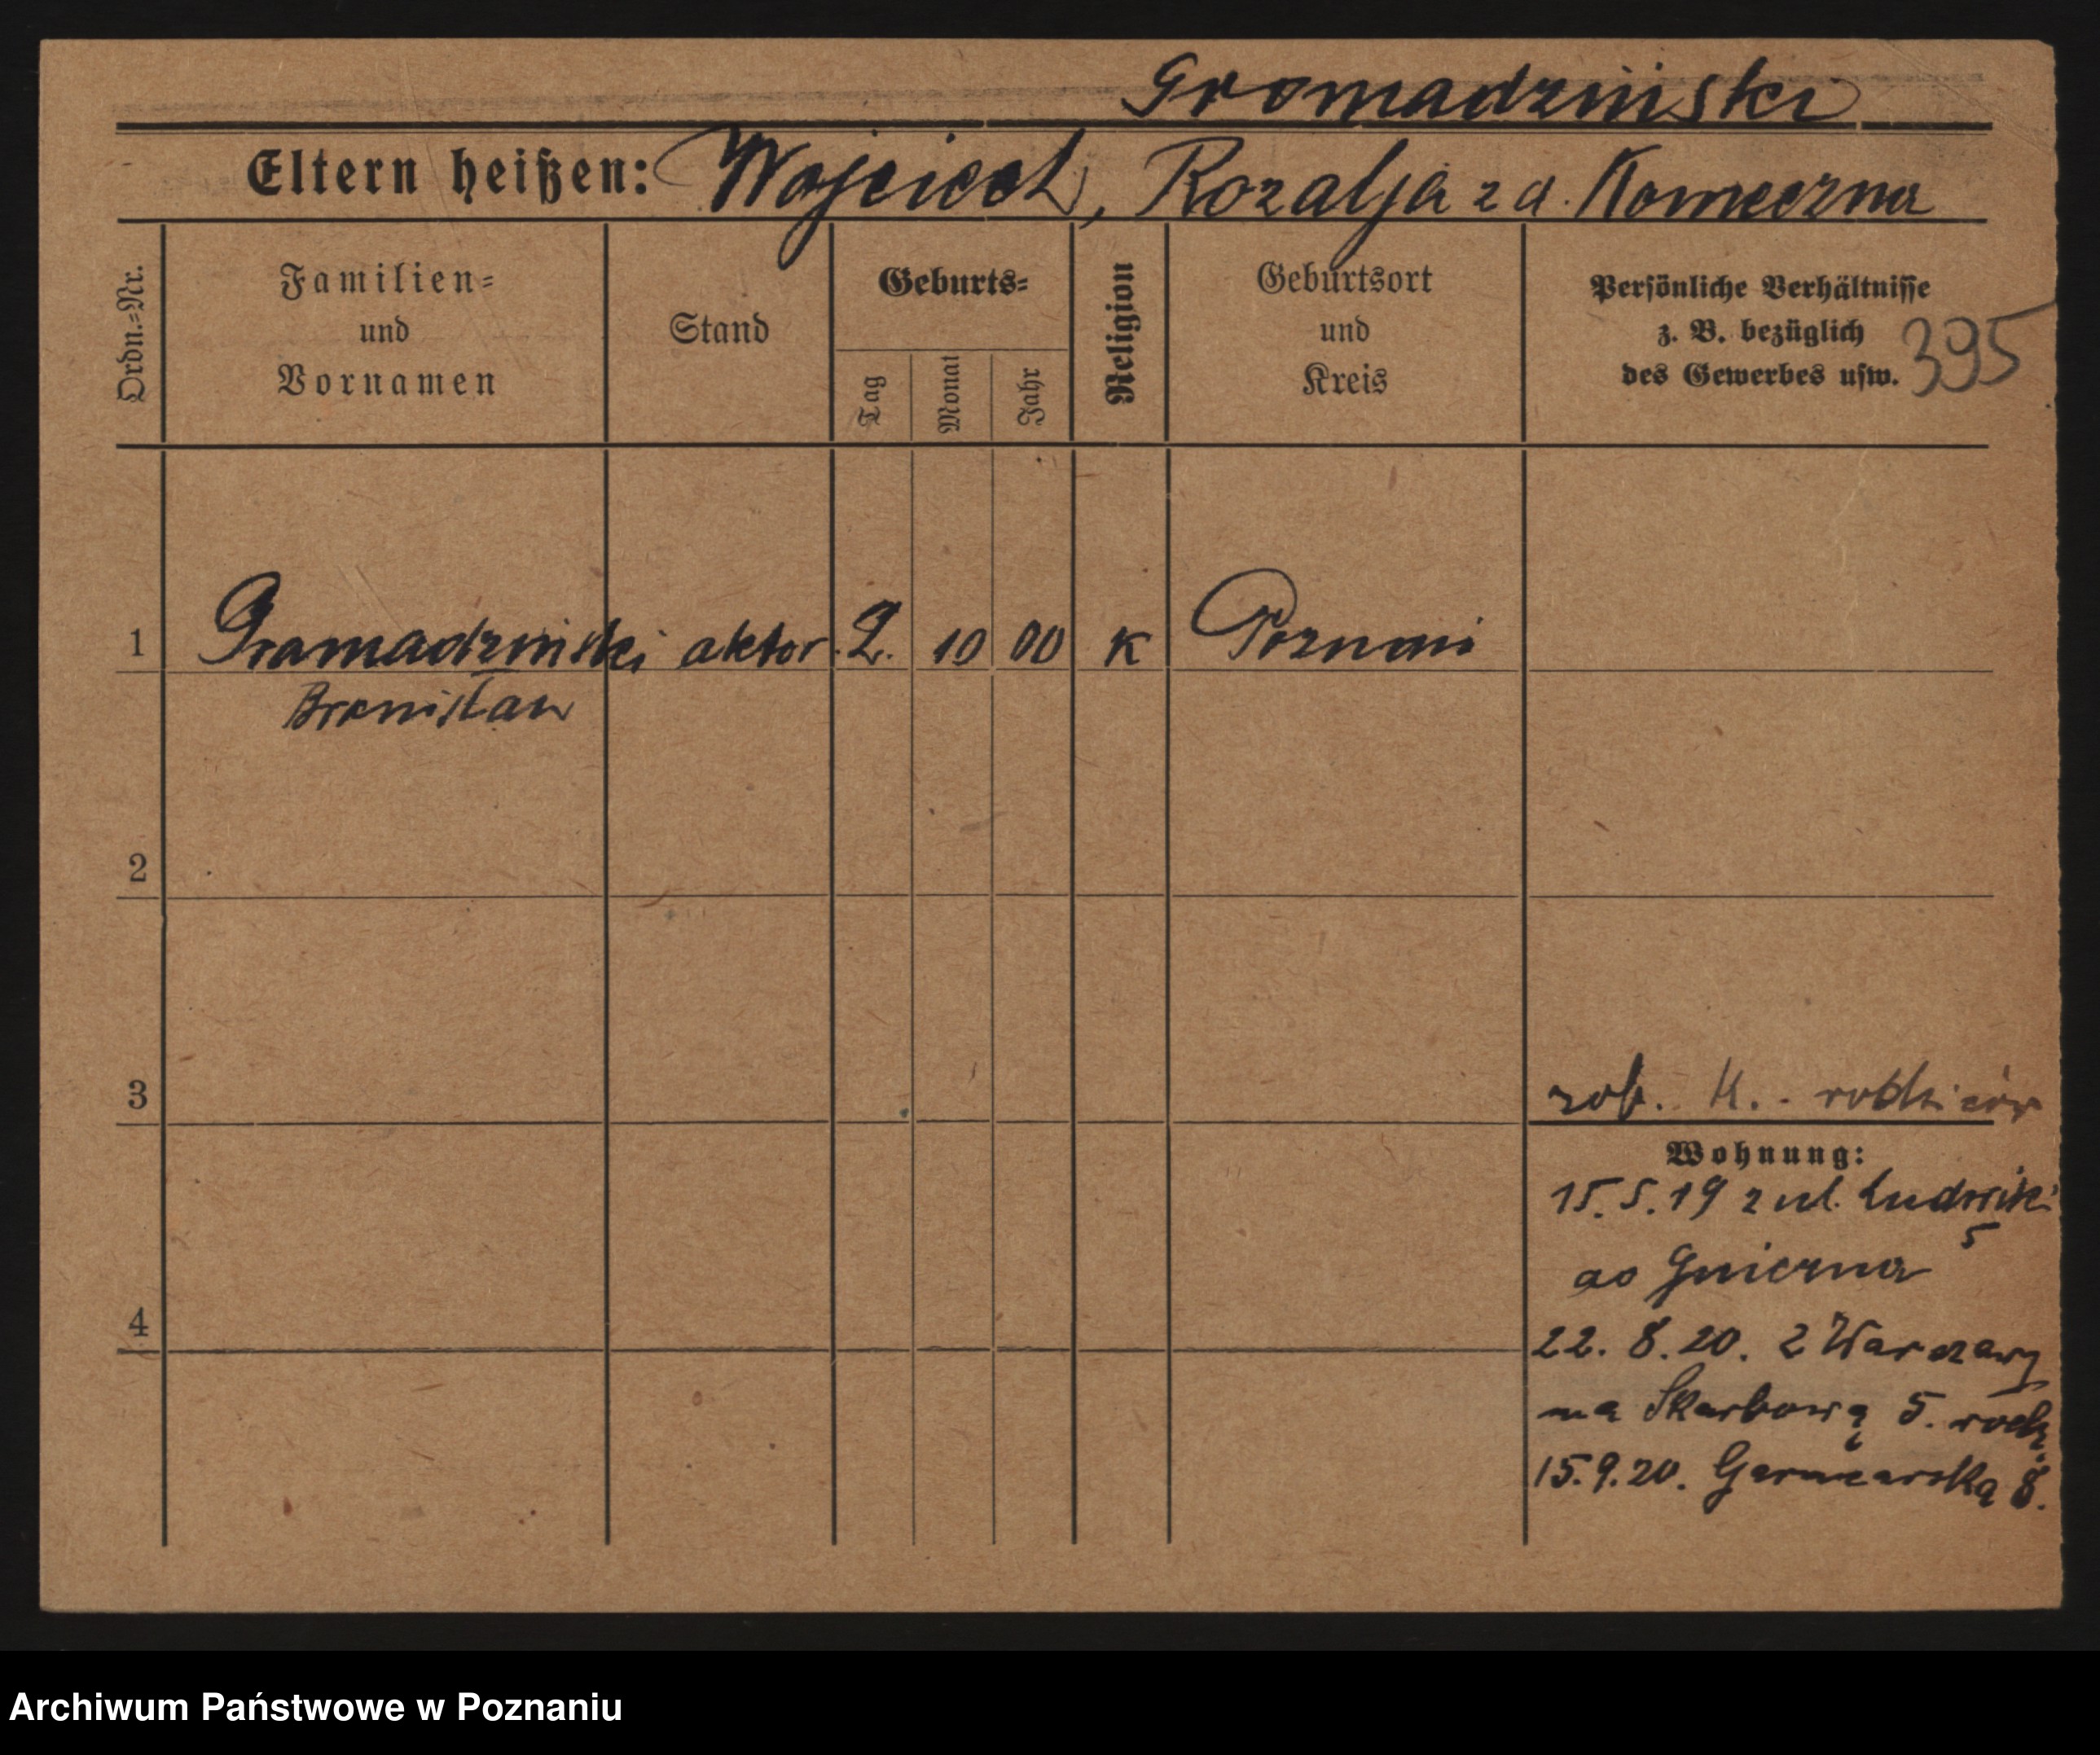 Gromadziński
Eltern heißen: Wojciech, Rozalja z d. Komeczna
Ordn.=Nr.
Familien=
und
Vornamen
Stand
Geburts=
Tag
Monat
Jahr
Religion
Geburtsort
und
Kreis
Persönliche Verhältnisse
z. B. bezüglich
des Gewerbes usw.
395
1 Gromadziński aktor 2. 10 00 K Poznań
Bronisław
2
3
zob. K. - rodziców
Wohnung:
15.5.19 z ul. Ludwiki
5
do Gniezna
4
22. 8. 20. z Warszawy
na Skarbową 5. rodz.
15.9.20. Garncarska 8.
Archiwum Państwowe w Poznaniu